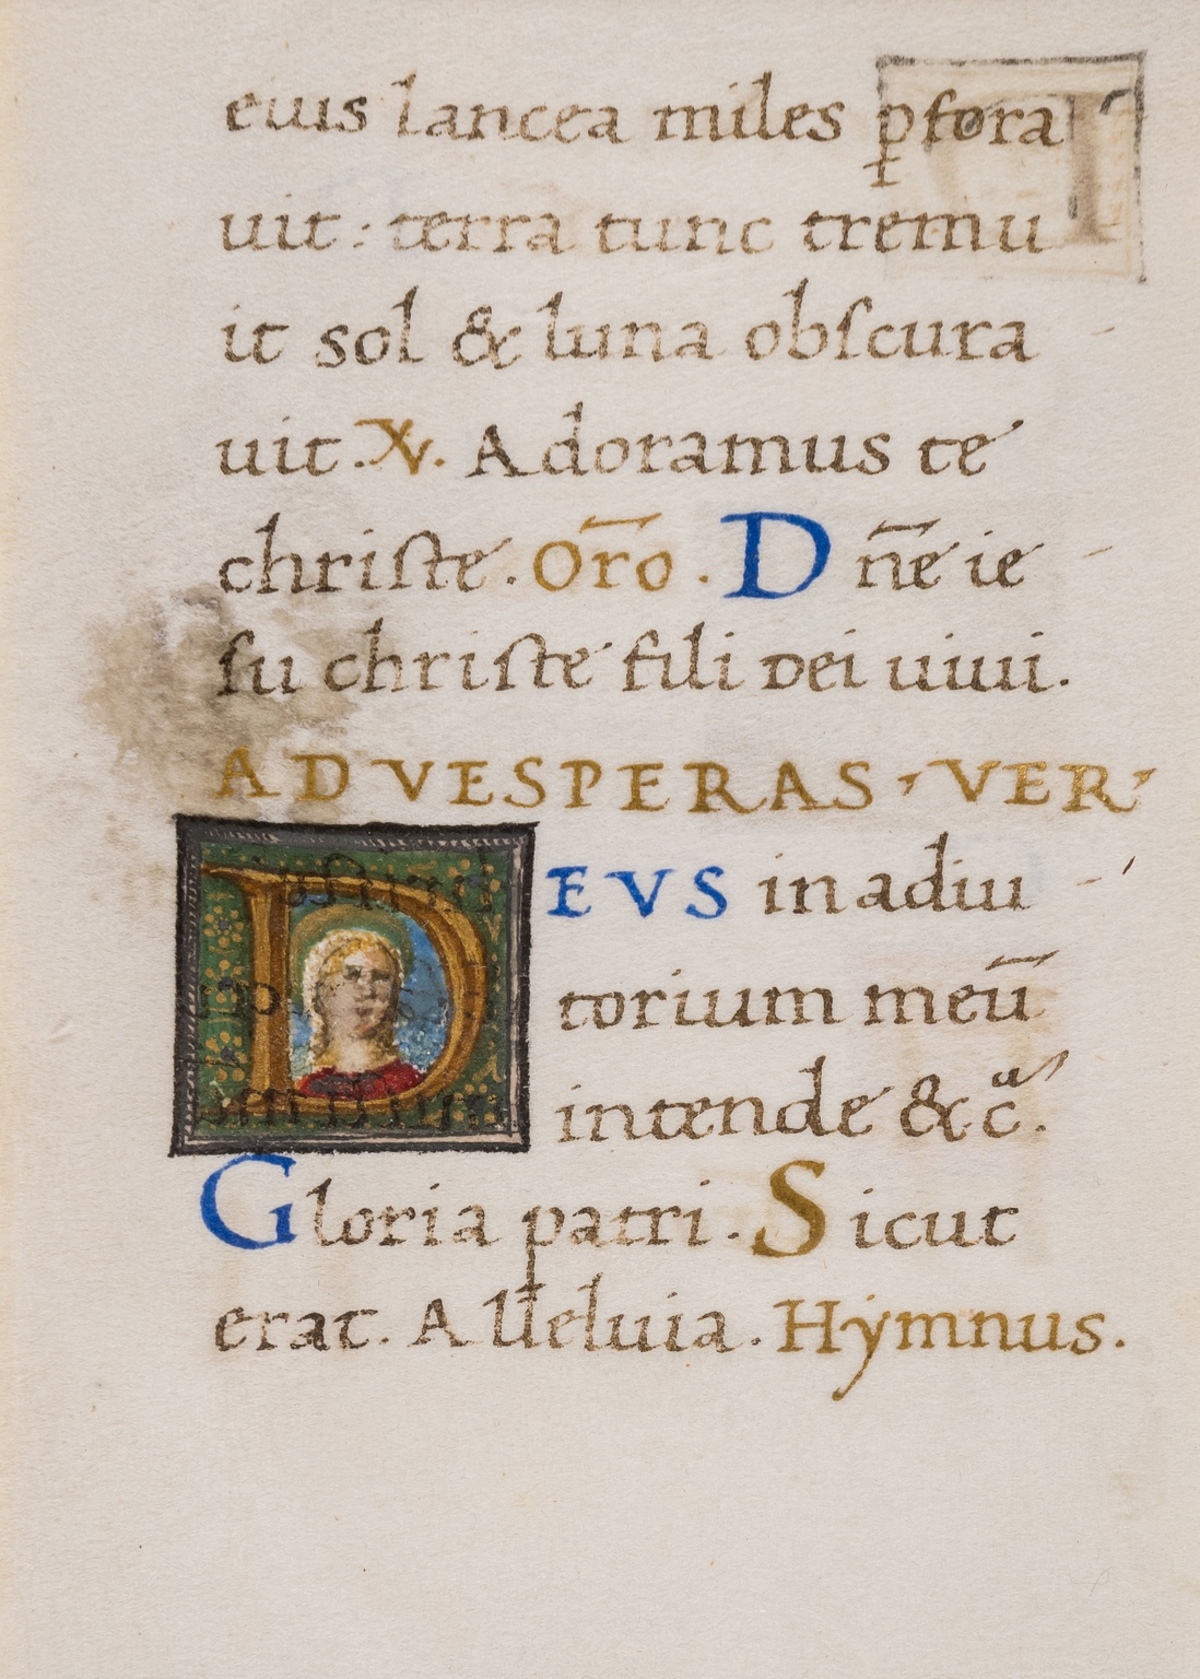 eius lancea miles ꝑfora
uit: terra tunc tremu
it sol & luna obſcura
uit. ℣. Adoramus te
chriſte. Or̄o. Dn̄e ie
ſu chriſte fili dei uiui.
AD VESPERAS, VER'
DEVS in adiu
torium meū
intende & cᵃ.
Gloria patri. Sicut
erat. Alleluia. Hymnus.